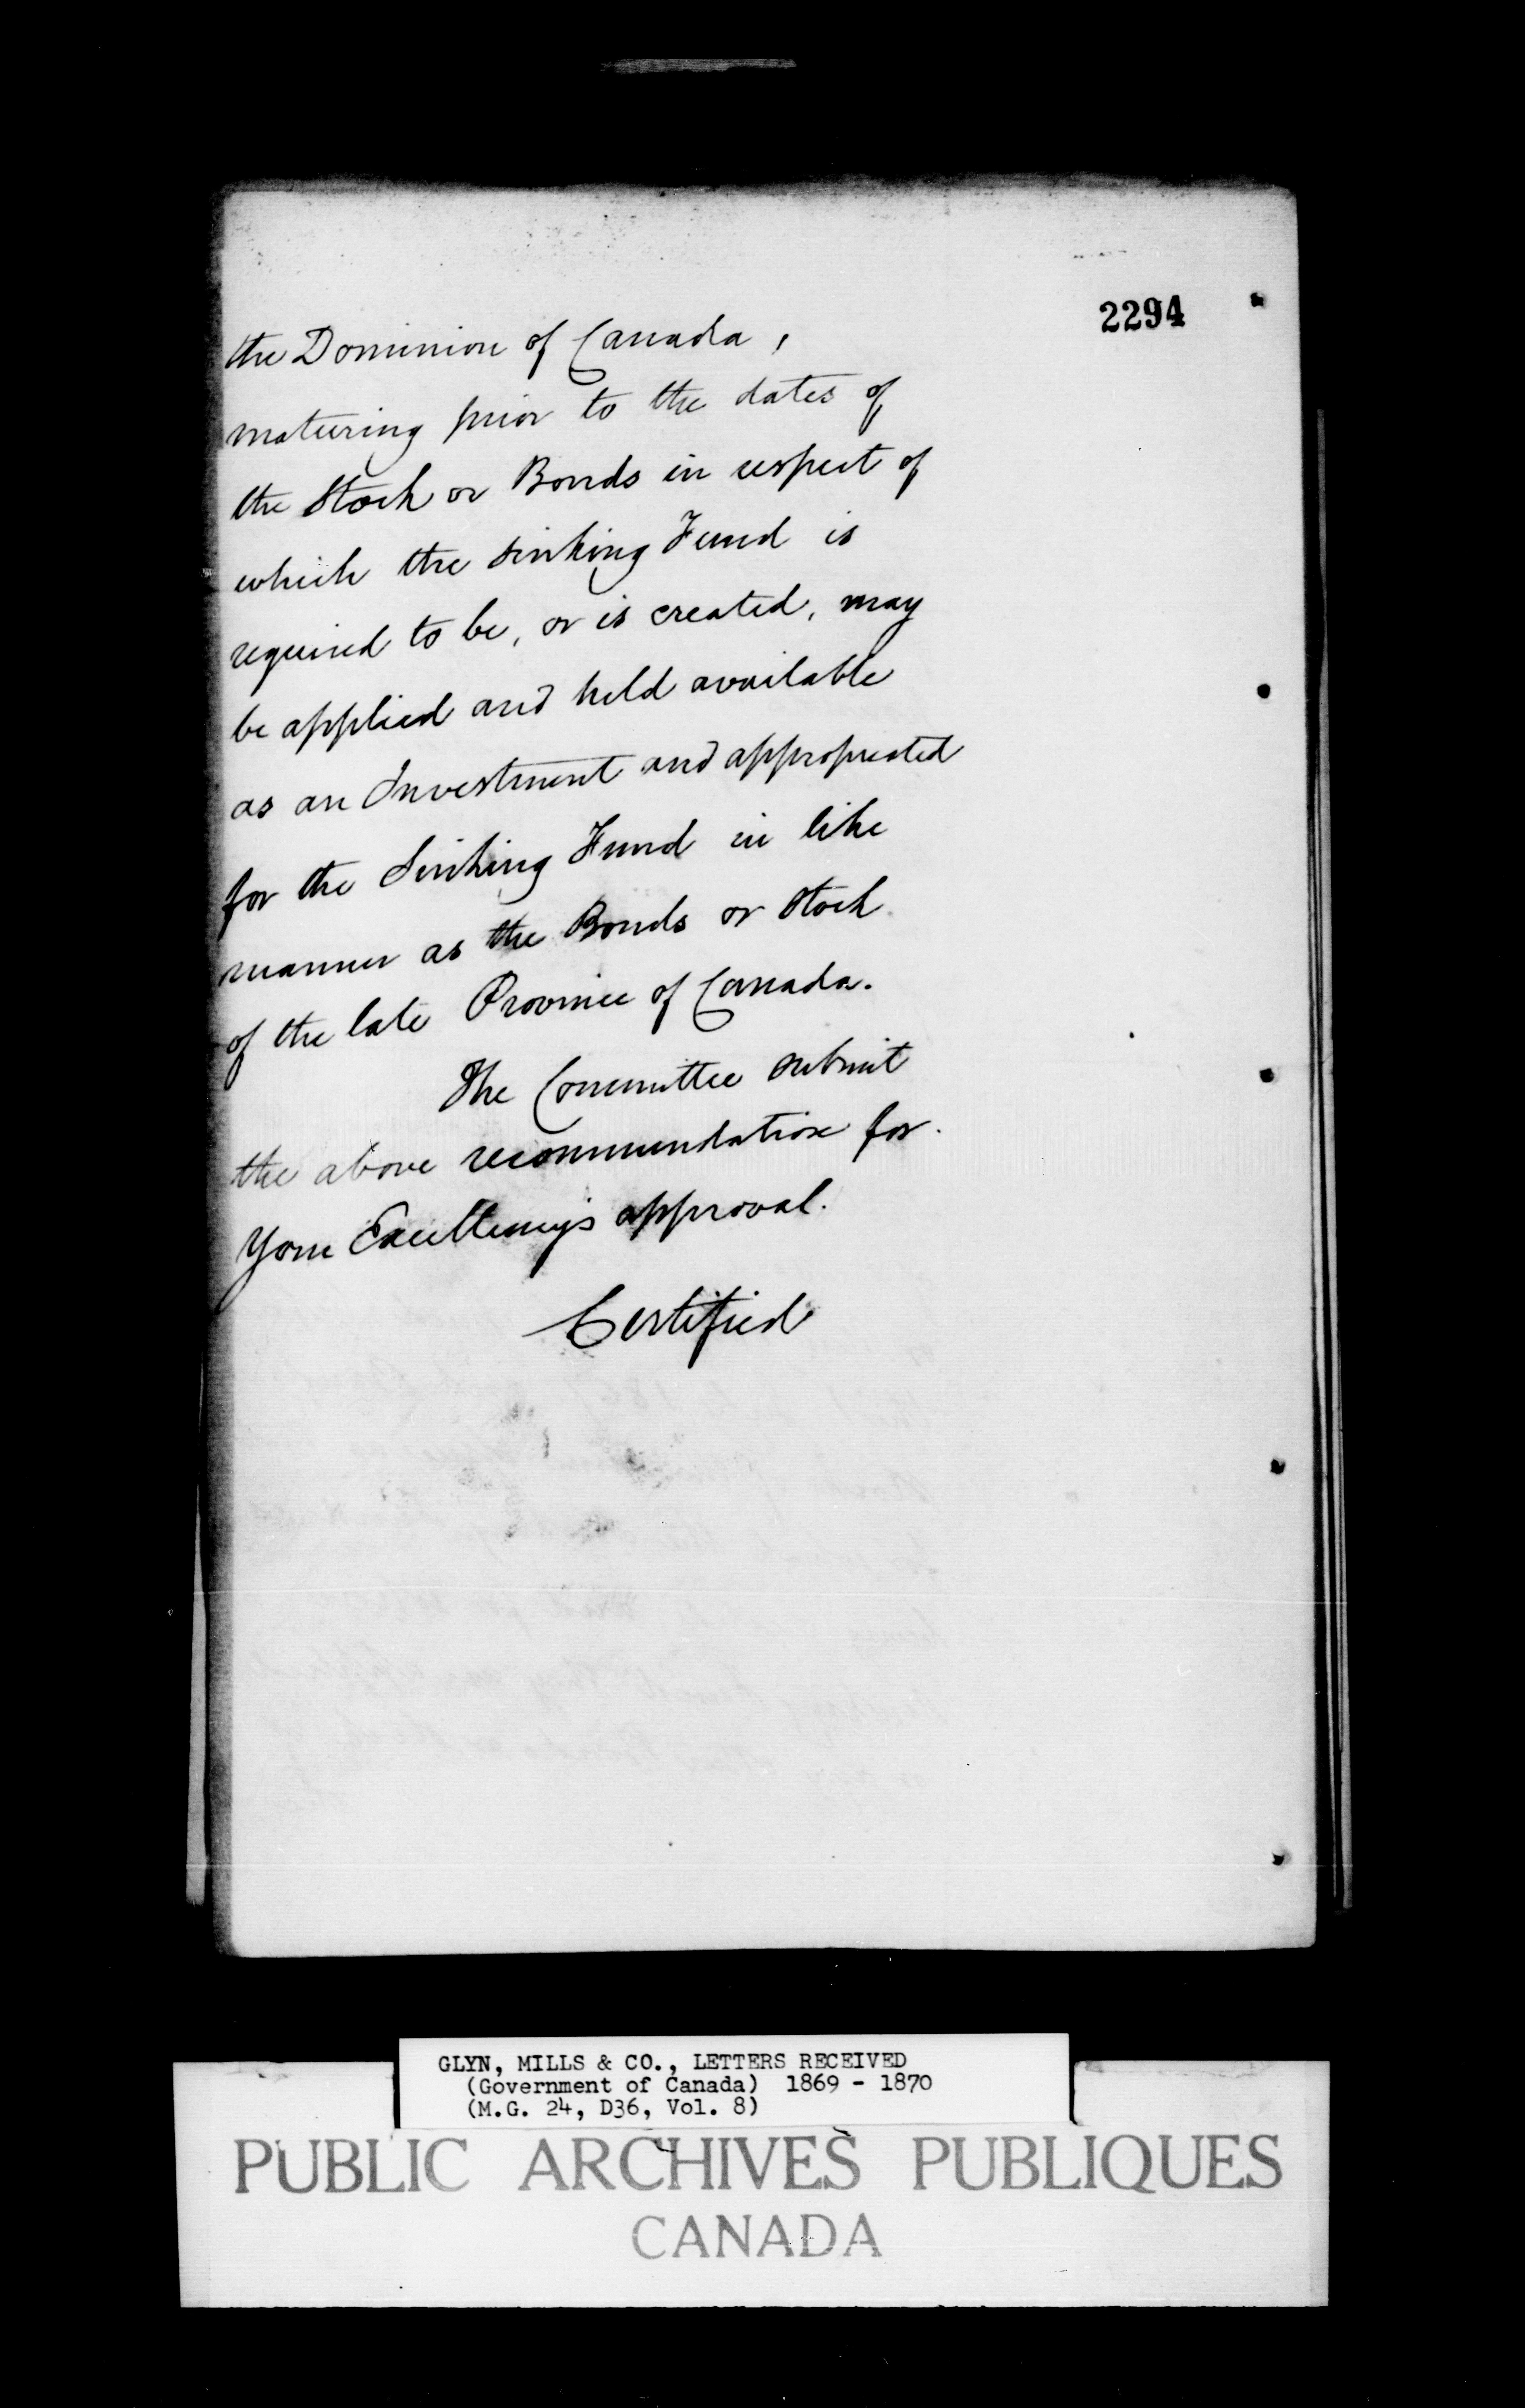 2294
the Dominion of Canada,
maturing prior to the dates of
the Stock or Bonds in respect of
which the Sinking Fund is
required to be, or is created, may
be applied and held available
as an Investment and appropriated
for the Sinking Fund in like
manner as the Bonds or Stock
of the late Province of Canada.
The Committee submit
the above recommendation for
Your Excellency's approval.
Certified
GLYN, MILLS & CO., LETTERS RECEIVED
(Government of Canada) 1869 - 1870
(M.G. 24, D36, Vol. 8)
PUBLIC ARCHIVES PUBLIQUES
CANADA